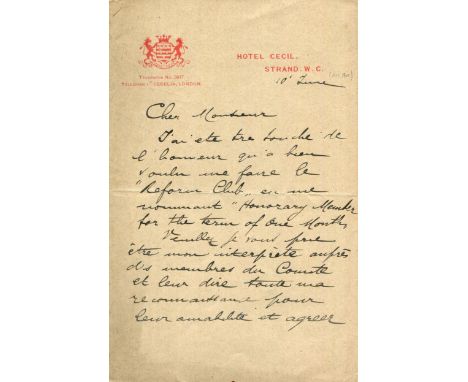 HOTEL CECIL,
STRAND. W.C.
TELEPHONE No. 3917
TELEGRAMS "CECELIA, LONDON.
10 June
Cher Monsieur
J'ai ete tre touche de
l'honneur qu'a bien
voulu me faire le
"Reform Club" en me
nommant "Honorary Member
for the term of One Month,
Veuillez je vous prie
être mon interprète auprès
des membres du Comite
et leur dire toute ma
reconnaissance pour
leur amabilité et agreer